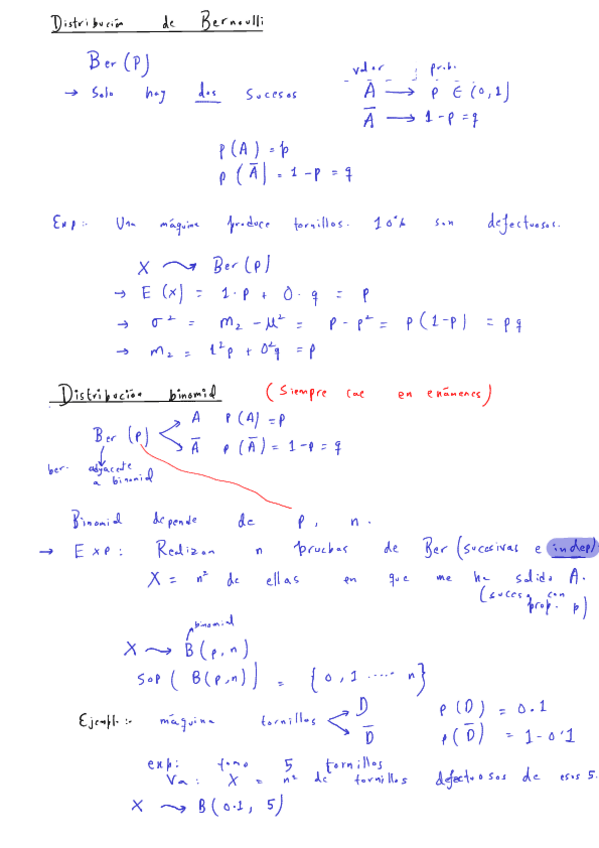 Distribución de Bernoulli
Ber(p)
→ Solo hay dos sucesos
valor ; prob.
A → p ∈ (0,1)
A̅ → 1-p = q
p(A) = p
p(A̅) = 1-p = q
Exp:- Una máquina produce tornillos. 10% son defectuosos.
X ⤳ Ber(p)
→ E(x) = 1·p + 0·q = p
→ σ² = m₂ - μ² = p - p² = p(1-p) = pq
→ m₂ = 1²p + 0²q = p
Distribución binomial (Siempre cae en exámenes)
Ber(p) A p(A) = p
A̅ p(A̅) = 1-p = q
ber. adyacente
a binomial
Binomial depende de p, n.
→ Exp: Realizan n pruebas de Ber (sucesivas e indep)
X = nº de ellas en que me ha salido A.
(suceso con
prop. p)
binomial
X ⤳ B(p,n)
Sop(B(p,n)) = {0,1 ..... n}
Ejempl:- máquina tornillos D p(D) = 0.1
D̅ p(D̅) = 1-0'1
exp: tomo 5 tornillos
Va: X = nº de tornillos defectuosos de esos 5.
X ⤳ B(0.1, 5)